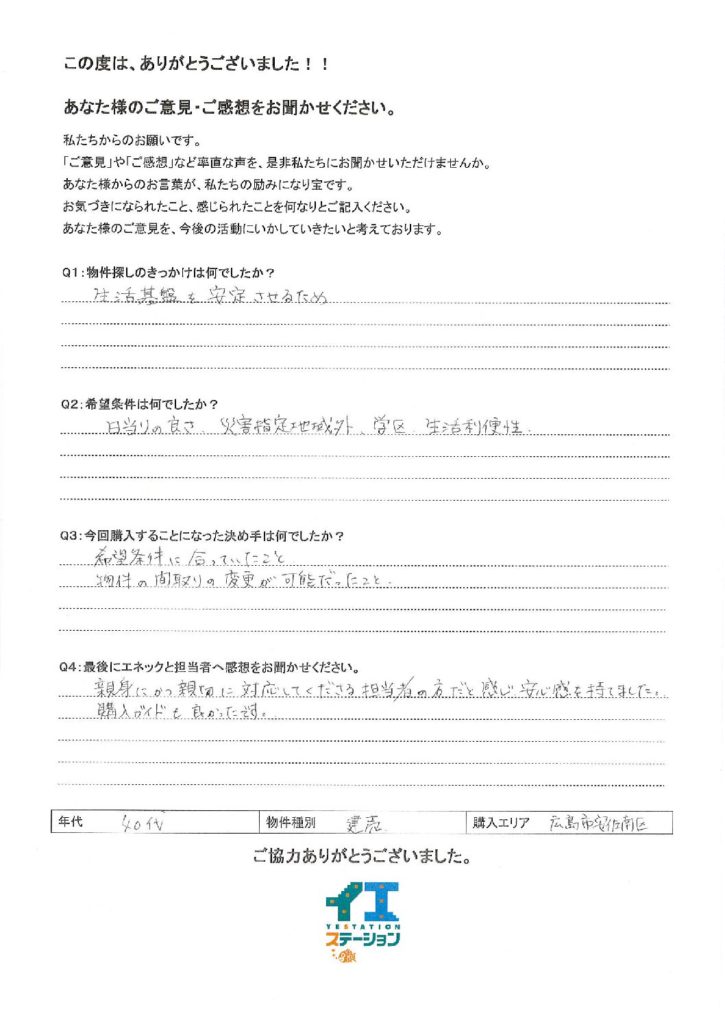 この度は、ありがとうございました！！
あなた様のご意見・ご感想をお聞かせください。
私たちからのお願いです。
「ご意見」や「ご感想」など率直な声を、是非私たちにお聞かせいただけませんか。
あなた様からのお言葉が、私たちの励みになり宝です。
お気づきになられたこと、感じられたことを何なりとご記入ください。
あなた様のご意見を、今後の活動にいかしていきたいと考えております。
Q1：物件探しのきっかけは何でしたか？
生活基盤を安定させるため
Q2：希望条件は何でしたか？
日当りの良さ、災害指定地域外、学区、生活利便性．
Q3：今回購入することになった決め手は何でしたか？
希望条件に合っていたこと
物件の間取りの変更が可能だったこと．
Q4：最後にエネックと担当者へ感想をお聞かせください。
親身にかつ親切に対応してくださる担当者の方だと感じ安心感を持てました。
購入ガイドも良かったです。
年代 40代 物件種別 建売 購入エリア 広島市安佐南区
ご協力ありがとうございました。
イエ
YESTATION
ステーション